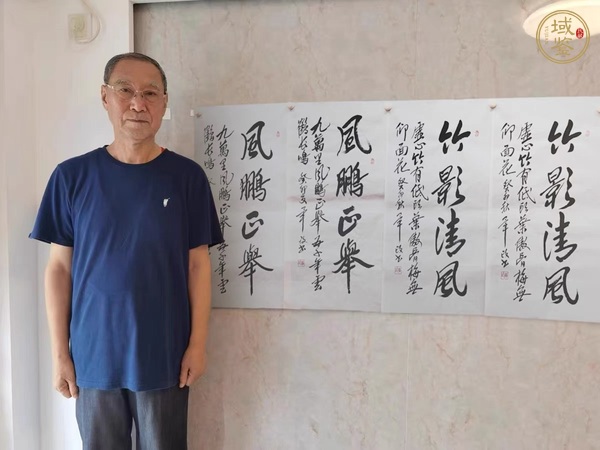 竹影清風
虛心竹有低頭葉傲骨梅無
仰面花 癸卯秋
竹影清風
虛心竹有低頭葉傲骨梅無
仰面花 癸卯秋
風鵬正舉
九萬里風鵬正舉
年雲
鶴長鳴 癸卯
風鵬正舉
九萬里風鵬正舉
年雲
鶴長鳴
域鑒